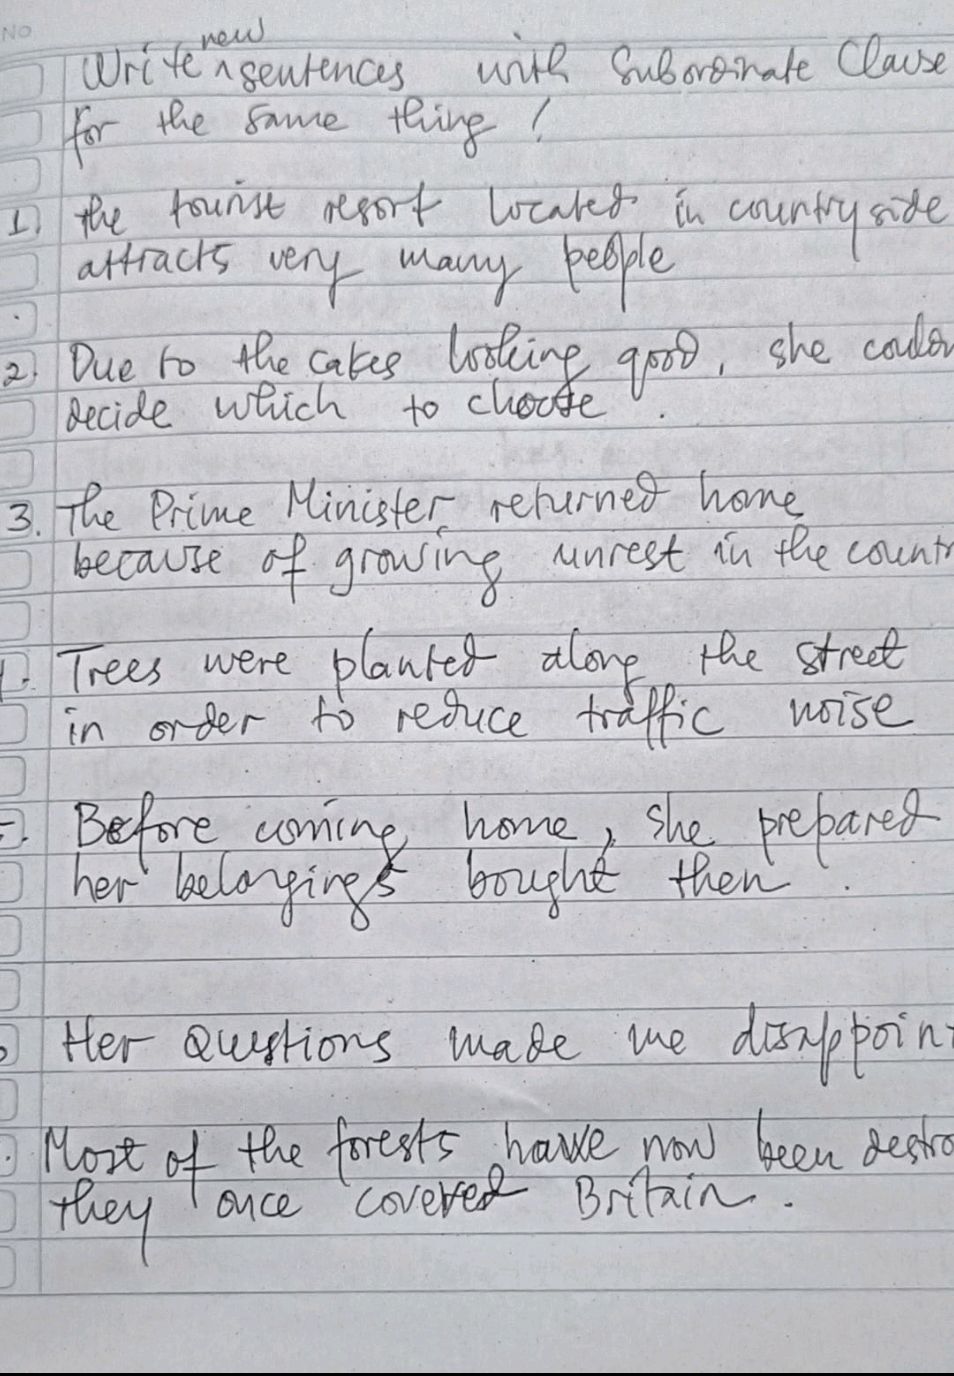 NO
Write new sentences with Subordinate Clause
for the same thing !
1. the tourist resort located in countryside
attracts very many people
2. Due to the cakes looking good, she
decide which to choose .
3. The Prime Minister returned home
because of growing unrest in the
Trees were planted along the street
in order to reduce traffic noise
Before coming home, she prepared
her belongings bought then .
Her Questions made me
Most of the forests have now been
they once covered Britain .